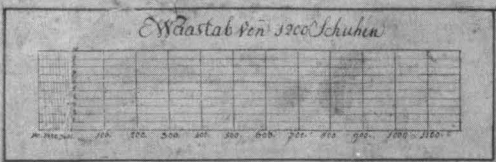 Maastab Von 1200 Schuhen
100. 200. 300. 400. 500. 600. 700. 800. 900. 1000. 1100.